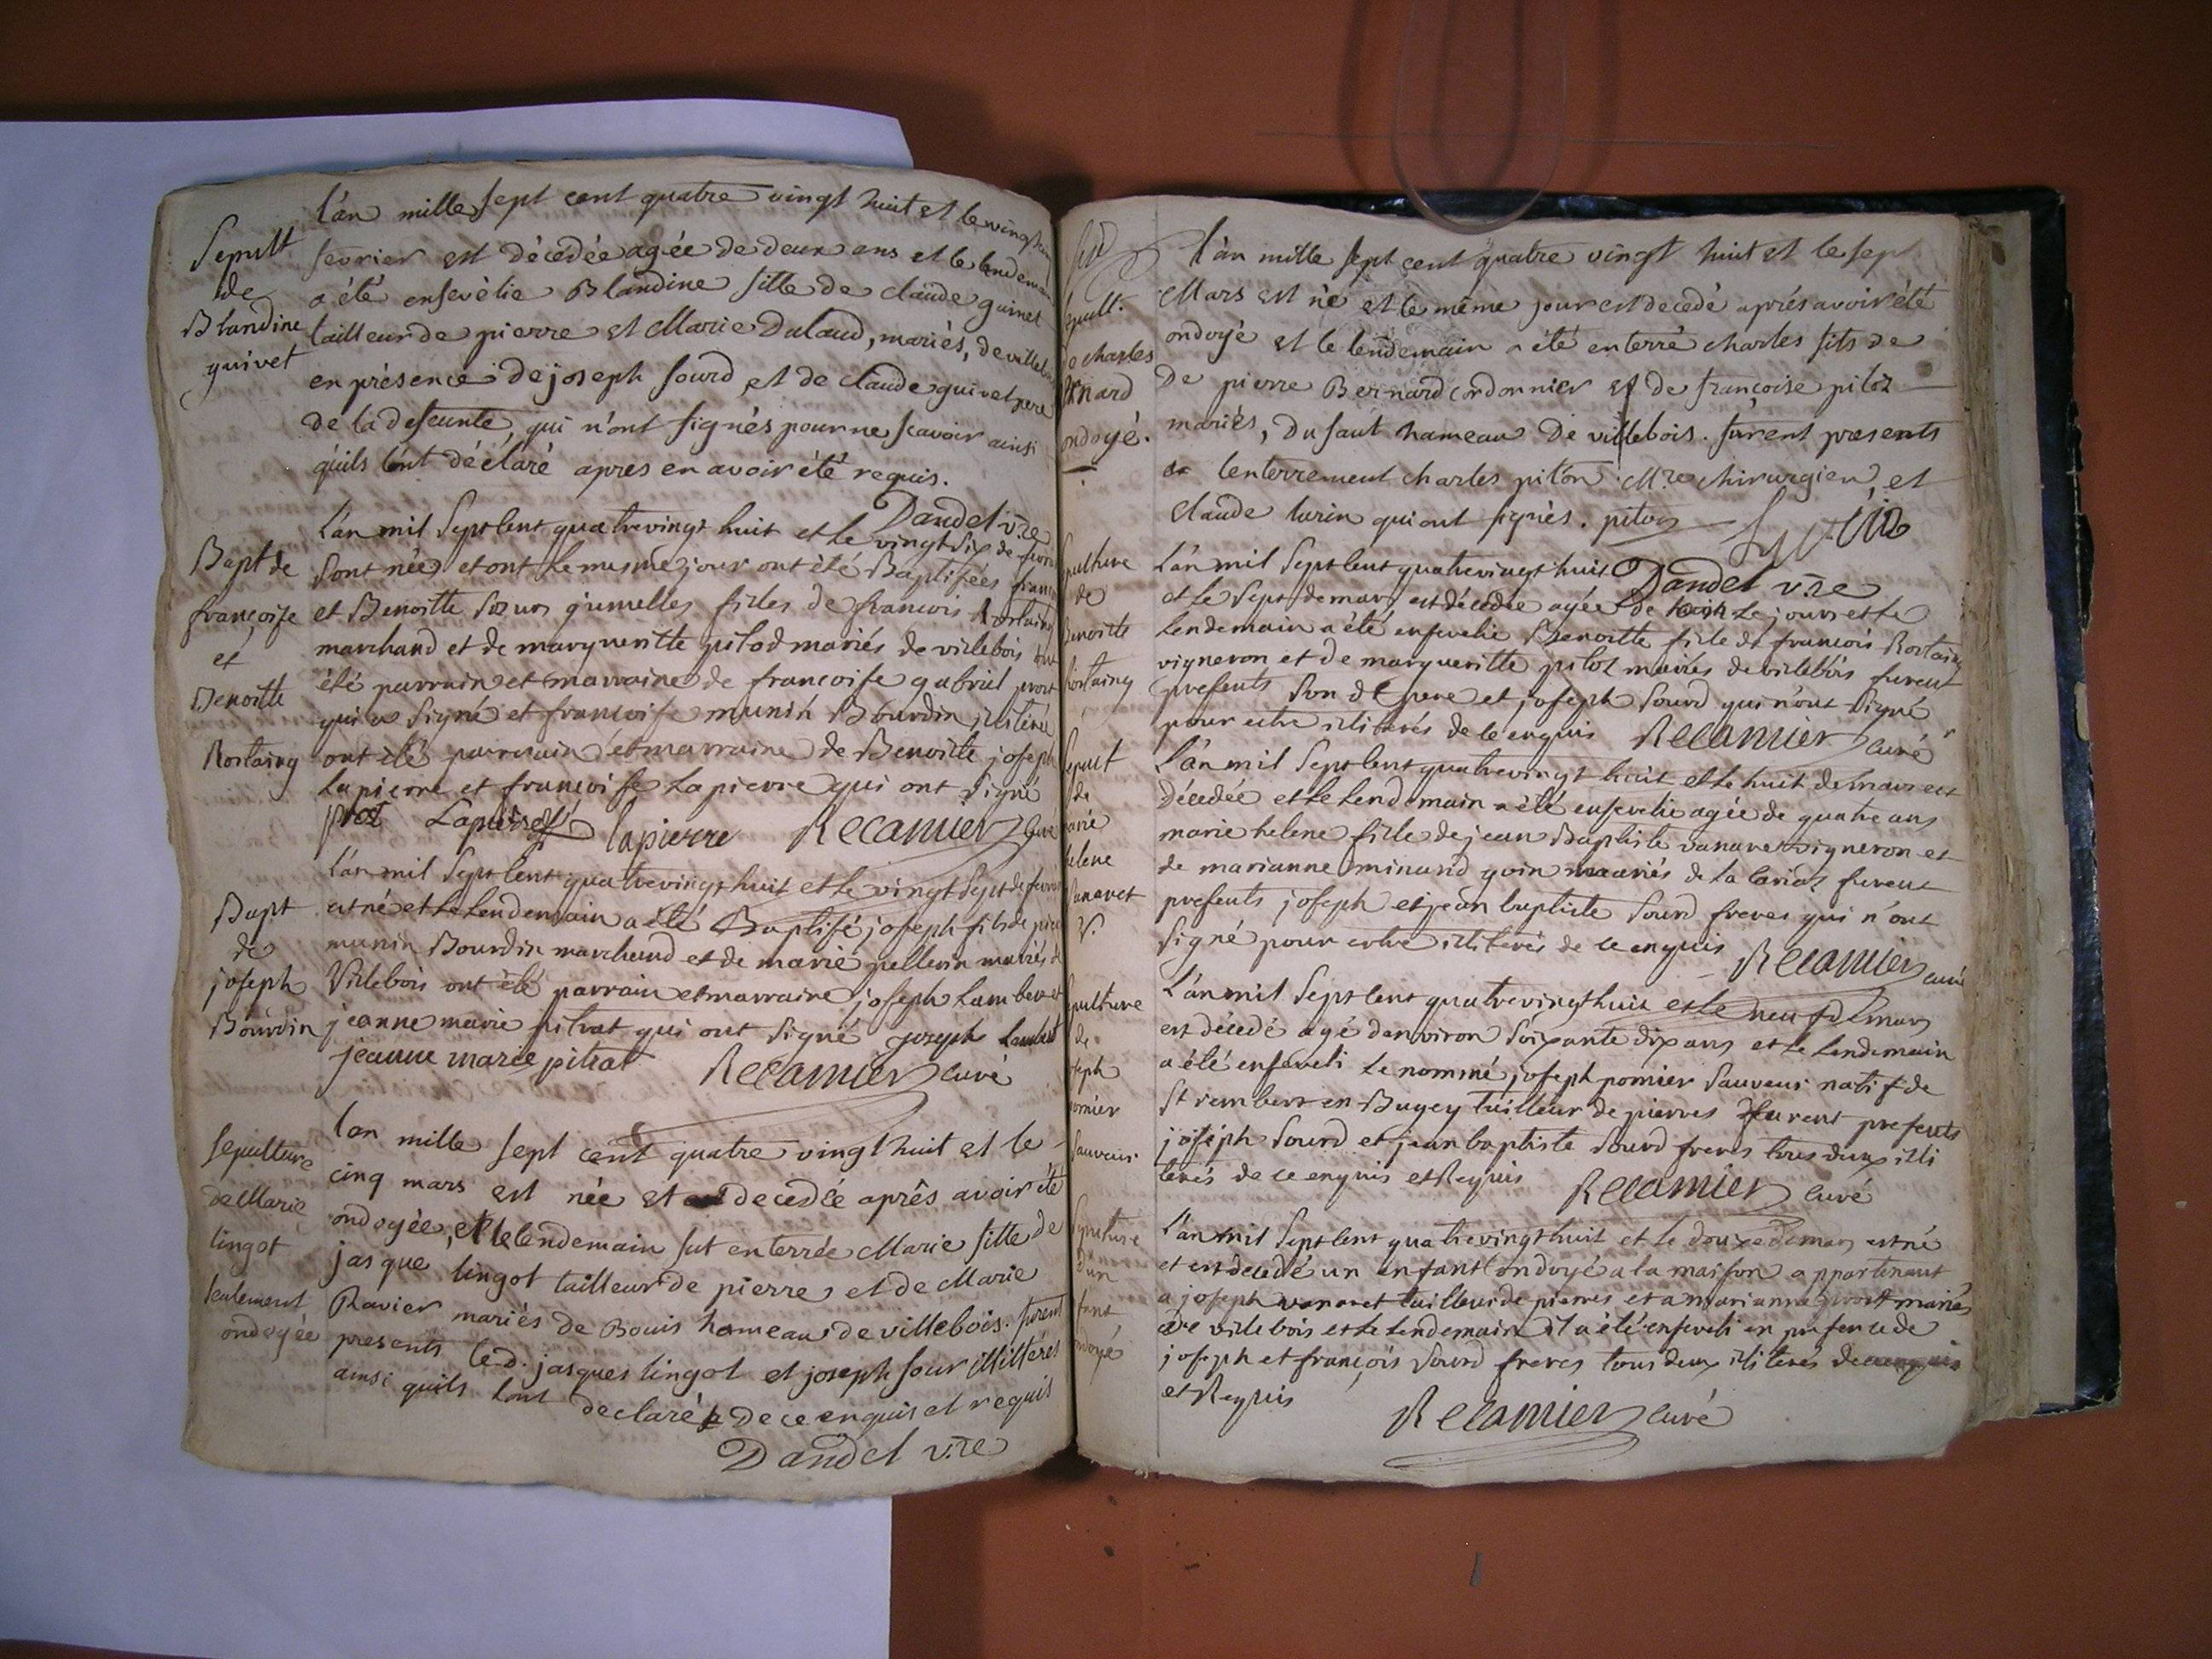 Sepult
de
Blandine
guivet
L'an mille sept cent quatre vingt huit et le vingt
fevrier est décédée agée de deux ans et le lendemain
a été ensevèlie Blandine fille de claude guivet
tailleur de pierre et Marie Dulaud, mariés, de villebois
en présence de joseph sourd et de claude guivet pere
de la defeunte, qui n'ont signés pour ne scavoir ainsi
qu'ils l'ont déclaré apres en avoir été requis.
Dandel v.re
Bapt de
françoise
et
Benoitte
Rostaing
L'an mil Sept Cent quatrevingt huit et le vingt Six de fevrier
Sont nées et ont le mesme jour ont été Baptisées
et Benoitte Soeurs jumelles filles de françois Rostaing
marchand et de margueritte pilod mariés de villebois ont
été parrain et marraine de francoise gabriel prost
qui a Signé et francoise munin Bourdin
ont été parrain et marraine de Benoitte joseph
Lapierre et françoise Lapierre qui ont Signé
prost Lapierre lapierre Recamier Curé
Bapt
de
joseph
Bourdin
L'an mil Sept Cent quatrevingt huit et le vingt Sept de fevrier
est né et le lendemain a été Baptisé joseph fils de
munin Bourdin marchand et de marie pellerin mariés de
Villebois ont été parrain et marraine joseph Lambert
jeanne marie pitrat qui ont Signé joseph Lambert
jeanne marie pitrat Recamier Curé
sepulture
de Marie
lingot
seulement
ondoyée
lan mille sept cent quatre vingt huit et le
cinq mars est née et decedée après avoir été
ondoyée, et le lendemain fut enterrée Marie fille de
jasque lingot tailleur de pierre, et de Marie
Ravier mariés de Bouis hameau de villebois. furent
presents led. jasques lingot et joseph sour illitérés
ainsi quils lont declaré de ce enquis et requis
Dandel v.re
sepult.
de charles
Bernard
ondoyé.
l'an mille sept cent quatre vingt huit et le sept
Mars est né et le même jour est decedé après avoir été
ondoyé et le lendemain a été enterré charles fils de
De pierre Bernard cordonnier et de françoise piloz
mariés, Du saut hameau De villebois. furent presents
a lenterrement charles piton M.re chirurgien, et
Claude lurin qui ont signés.
Dandel v.re
sepulture
de
Benoitte
Rostaing
L'an mil Sept Cent quatrevingt huit
et le Sept de mars est décédée agée de jours et le
lendemain a été ensevelie Benoitte fille de françois Rostaing
vigneron et de margueritte piloz mariés de villebois furent
presents Son dt pere et joseph Sourd qui n'ont Signé
pour estre illiterés de ce enquis Recamier Curé
Sepult
de
marie
helene
vanaret
V.
L'an mil Sept Cent quatrevingt huit et le huit de mars est
décedée et le lendemain a été ensevelie agée de quatre ans
marie helene fille de jean Baptiste vanaret vigneron et
de marianne minand goin mariés de la furent
presents joseph et jean baptiste Sourd freres qui n'ont
Signé pour estre illiterés de ce enquis Recamier curé
sepulture
de
joseph
pomier
Sauveur
L'an mil Sept Cent quatrevingt huit et le neuf de mars
est décedé agé d'environ Soixante dix ans et le lendemain
a été enseveli le nommé joseph pomier Sauveur natif de
St rembert en Bugey tailleur de pierres furent presents
joseph Sourd et jean baptiste Sourd freres tous deux illi
terés de ce enquis et Requis Recamier Curé
Sepulture
d'un
enfant
ondoyé
L'an mil Sept Cent quatrevingt huit et le douze de mars est né
et est decedé un enfant ondoyé a la maison appartenant
a joseph vanaret tailleur de pierres et a marianne prost mariés
de villebois et le lendemain il a été enseveli en presence de
joseph et françois Sourd freres tous deux illiterés de ce enquis
et Requis
Recamier Curé